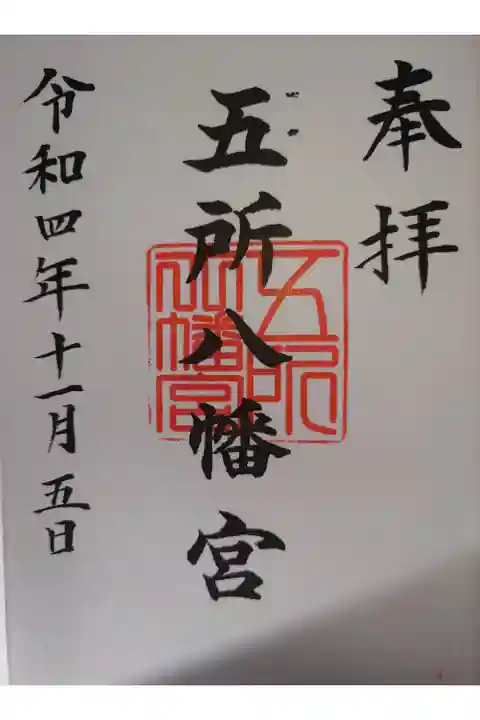 奉拝
五所八幡宮
五所
八幡宮
令和四年十一月五日